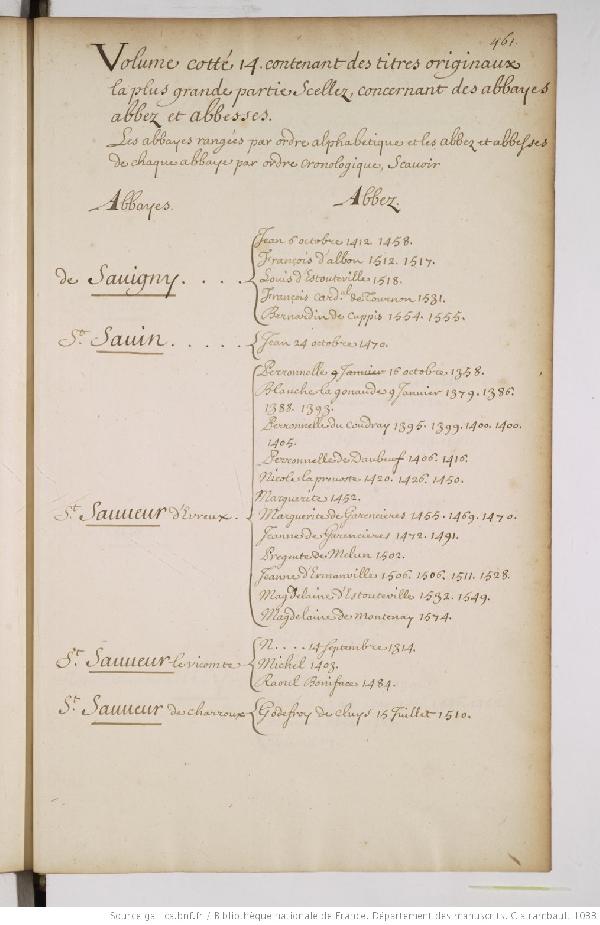 461.
Volume cotté 14. contenant des titres originaux
la plus grande partie Scellez, concernant des abbayes
abbez et abbesses.
Les abbayes rangées par ordre alphabetique et les abbez et abbesses
de chaque abbaye par ordre cronologique, Scavoir
Abbayes. Abbez.
de Savigny. . . . .
Jean 6 octobre 1412. 1458.
François d'albon 1512. 1517.
Louis d'Estouteville 1518.
François Card.al de Tournon 1531.
Bernardin de Cappis 1554. 1555.
St. Sauin. . . . . .
Jean 24 octobre 1470.
St. Sauueur d'Evreux.
Perronnelle 9 Janvier 16 octobre 1358.
Blanche la gonaude 9 Janvier 1379. 1386.
1388. 1393.
Perronnelle du Coudray 1395. 1399. 1400. 1400.
1405.
Perronnelle de Daubeuf 1406. 1416.
Nicole la prevoste 1420. 1426. 1450.
Marguerite 1452.
Marguerite de Garencieres 1455. 1469. 1470.
Jeanne de Garencieres 1472. 1491.
Pregente de Melun 1502.
Jeanne d'Ermanville 1506. 1506. 1511. 1528.
Magdelaine d'Estouteville 1532. 1549.
Magdelaine de Montenay 1574.
St. Sauueur le vicomte
N. . . . . 14 septembre 1314.
Michel 1403.
Raoul Boniface 1484.
St. Sauueur de charroux
Godefroy de Cluys 15 Juillet 1510.
Source gallica.bnf.fr / Bibliothèque nationale de France. Département des manuscrits. Clairambault 1033